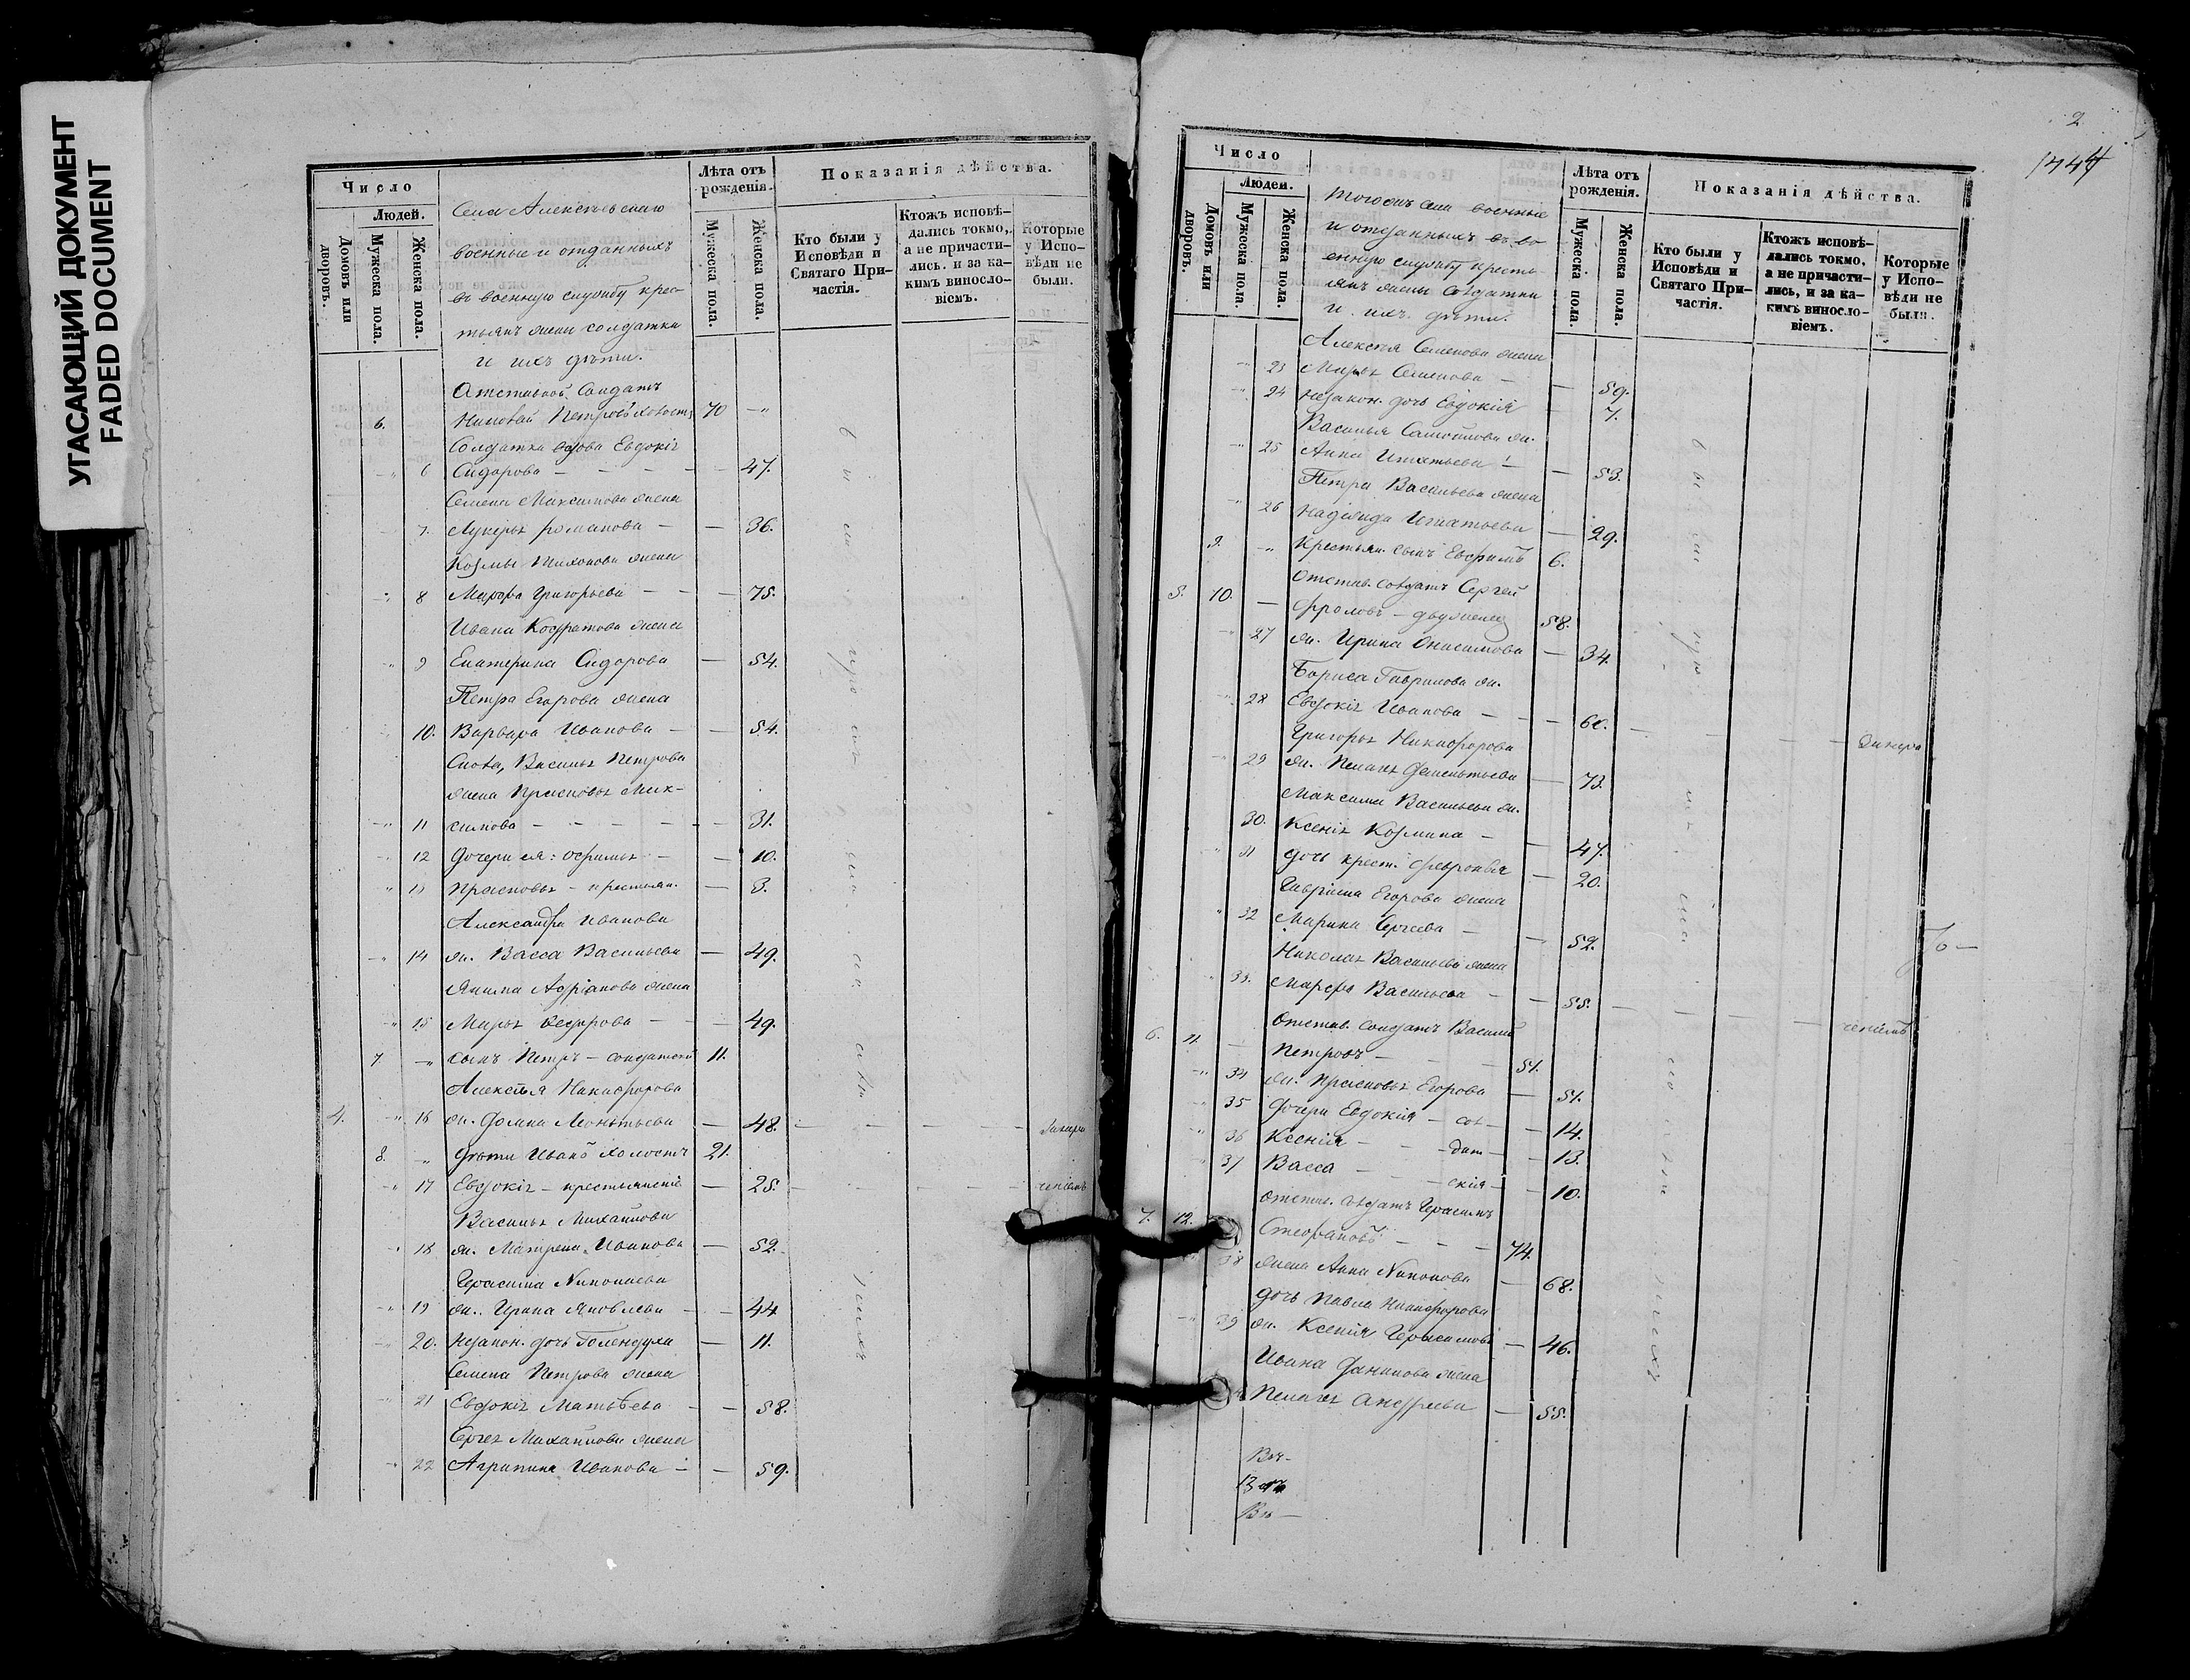 УГАСАЮЩИЙ ДОКУМЕНТ
FADED DOCUMENT
Число
Людей.
Домовъ или дворовъ.
Мужеска пола.
Женска пола.
Села Алексѣевскаго
военные и отданныхъ
въ военную службу крес-
тьянъ жены солдатки
и ихъ дѣти.
Лѣта отъ рожденія.
Мужеска пола.
Женска пола.
Показанія дѣйства.
Кто были у Исповѣди и Святаго При-частія.
Ктожъ исповѣ-дались токмо, а не причасти-лись. и за ка-кимъ винosло-віемъ.
Которые у Испо-вѣди не были.
Отставной Солдатъ
6. Петровъ холостъ 70 -„
Солдатка вдова Евдокія
-„ 6 Сидорова - - - - - 47.
Семена Максимова жена
7. Лукерья Романова - - 36.
Козмы жена
-„ 8 Марфа Григорьева - - - 75.
Ивана жена
-„ 9 Екатерина Сидорова - 54.
Петра Егорова жена
10. Варвара Иванова - - 54.
Василья Петрова
жена Прасковья Мак-
-„ 11 симова - - - - - - 31.
-„ 12 Дочери ея: - - 10.
„ 13 Прасковья - крестьян. - 3.
Александра Иванова
-„ 14 ж. Васса Васильева - 49.
Якима Адріанова жена
-„ 15 Марья - - - 49.
7. -„ сынъ Петръ - солдатскій 11.
Алексѣя Никифорова
4. -„ 16 ж. Домна - 48. - - - - - за нера
8. „ Дѣти Иванъ холостъ 21.
-„ 17 Евдокія - крестьянскіе - 25. - - - - - ченіемъ
Василья Михайлова
„ 18 ж. Матрена Иванова - 52.
Герасима
-„ 19 ж. Ирина Яковлева - - 44
-„ 20. Незакон. дочь Голендуха - 11.
Семена Петрова жена
-„ 21 Евдокія Матвѣева - - 58.
Сергея Михайлова жена
-„ 22 Агрипина Иванова - - 59.
2
1444
Число
Людей.
Домовъ или дворовъ.
Мужеска пола.
Женска пола.
Тогожъ села военные
и отданныхъ въ во
енную службу кресть
янъ жены солдатки
и ихъ дѣти.
Лѣта отъ рожденія.
Мужеска пола.
Женска пола.
Показанія дѣйства.
Кто были у Исповѣди и Святаго При-частія.
Ктожъ исповѣ-дались токмо, а не причасти-лись, и за ка-кимъ винosло-віемъ.
Которые у Испо-вѣди не были.
Алексѣя Семенова жена
-„ 23 Марья Семенова - - 59.
-„ 24 Незакон. дочь Евдокія - 7.
Василья Самойлова ж.
-„ 25 Анна Игнатьева - - 53.
Петра Васильева жена
-„ 26 Надежда Игнатьева - 29.
9. „ Крестьян. сынъ Евфимъ 6.
Отстав. солдатъ Сергей
5. 10. - Фроловъ - двуженецъ 58.
-„ 27 ж. Ирина Онисимова - 34.
Бориса Гаврилова ж.
-„ 28 Евдокія Иванова - - - 60. - - - - - за нера
Григорья Никифорова
-„ 29 ж. Пелагея - 73.
Максима Васильева ж.
30. Ксенія Козмина - - 47.
„ 31 дочь крест. Февронья - 20.
Гавріила Егорова жена
„ 32 Марина Сергеева - - 52.
Николая Васильева жена
„ 33. Марфа Васильева - - 55. - - - - - ченіемъ
Отстав. солдатъ Василій
6. 11. - Петровъ - - - - 51.
-„ 34 ж. Прасковья Егорова - 51.
„ 35 Дочери Евдокія - сол - - 14.
„ 36 Ксенія - - дат - - 13.
„ 37 Васса - - - скія - - 10.
Отстав. солдатъ Герасимъ
7. 12. Стефановъ - - - 74.
38 жена Анна - 68.
дочь Павла Никифорова
-„ 39 ж. Ксенія Герасимова - 46.
Ивана Данилова жена
Пелагея Андреева - 55.